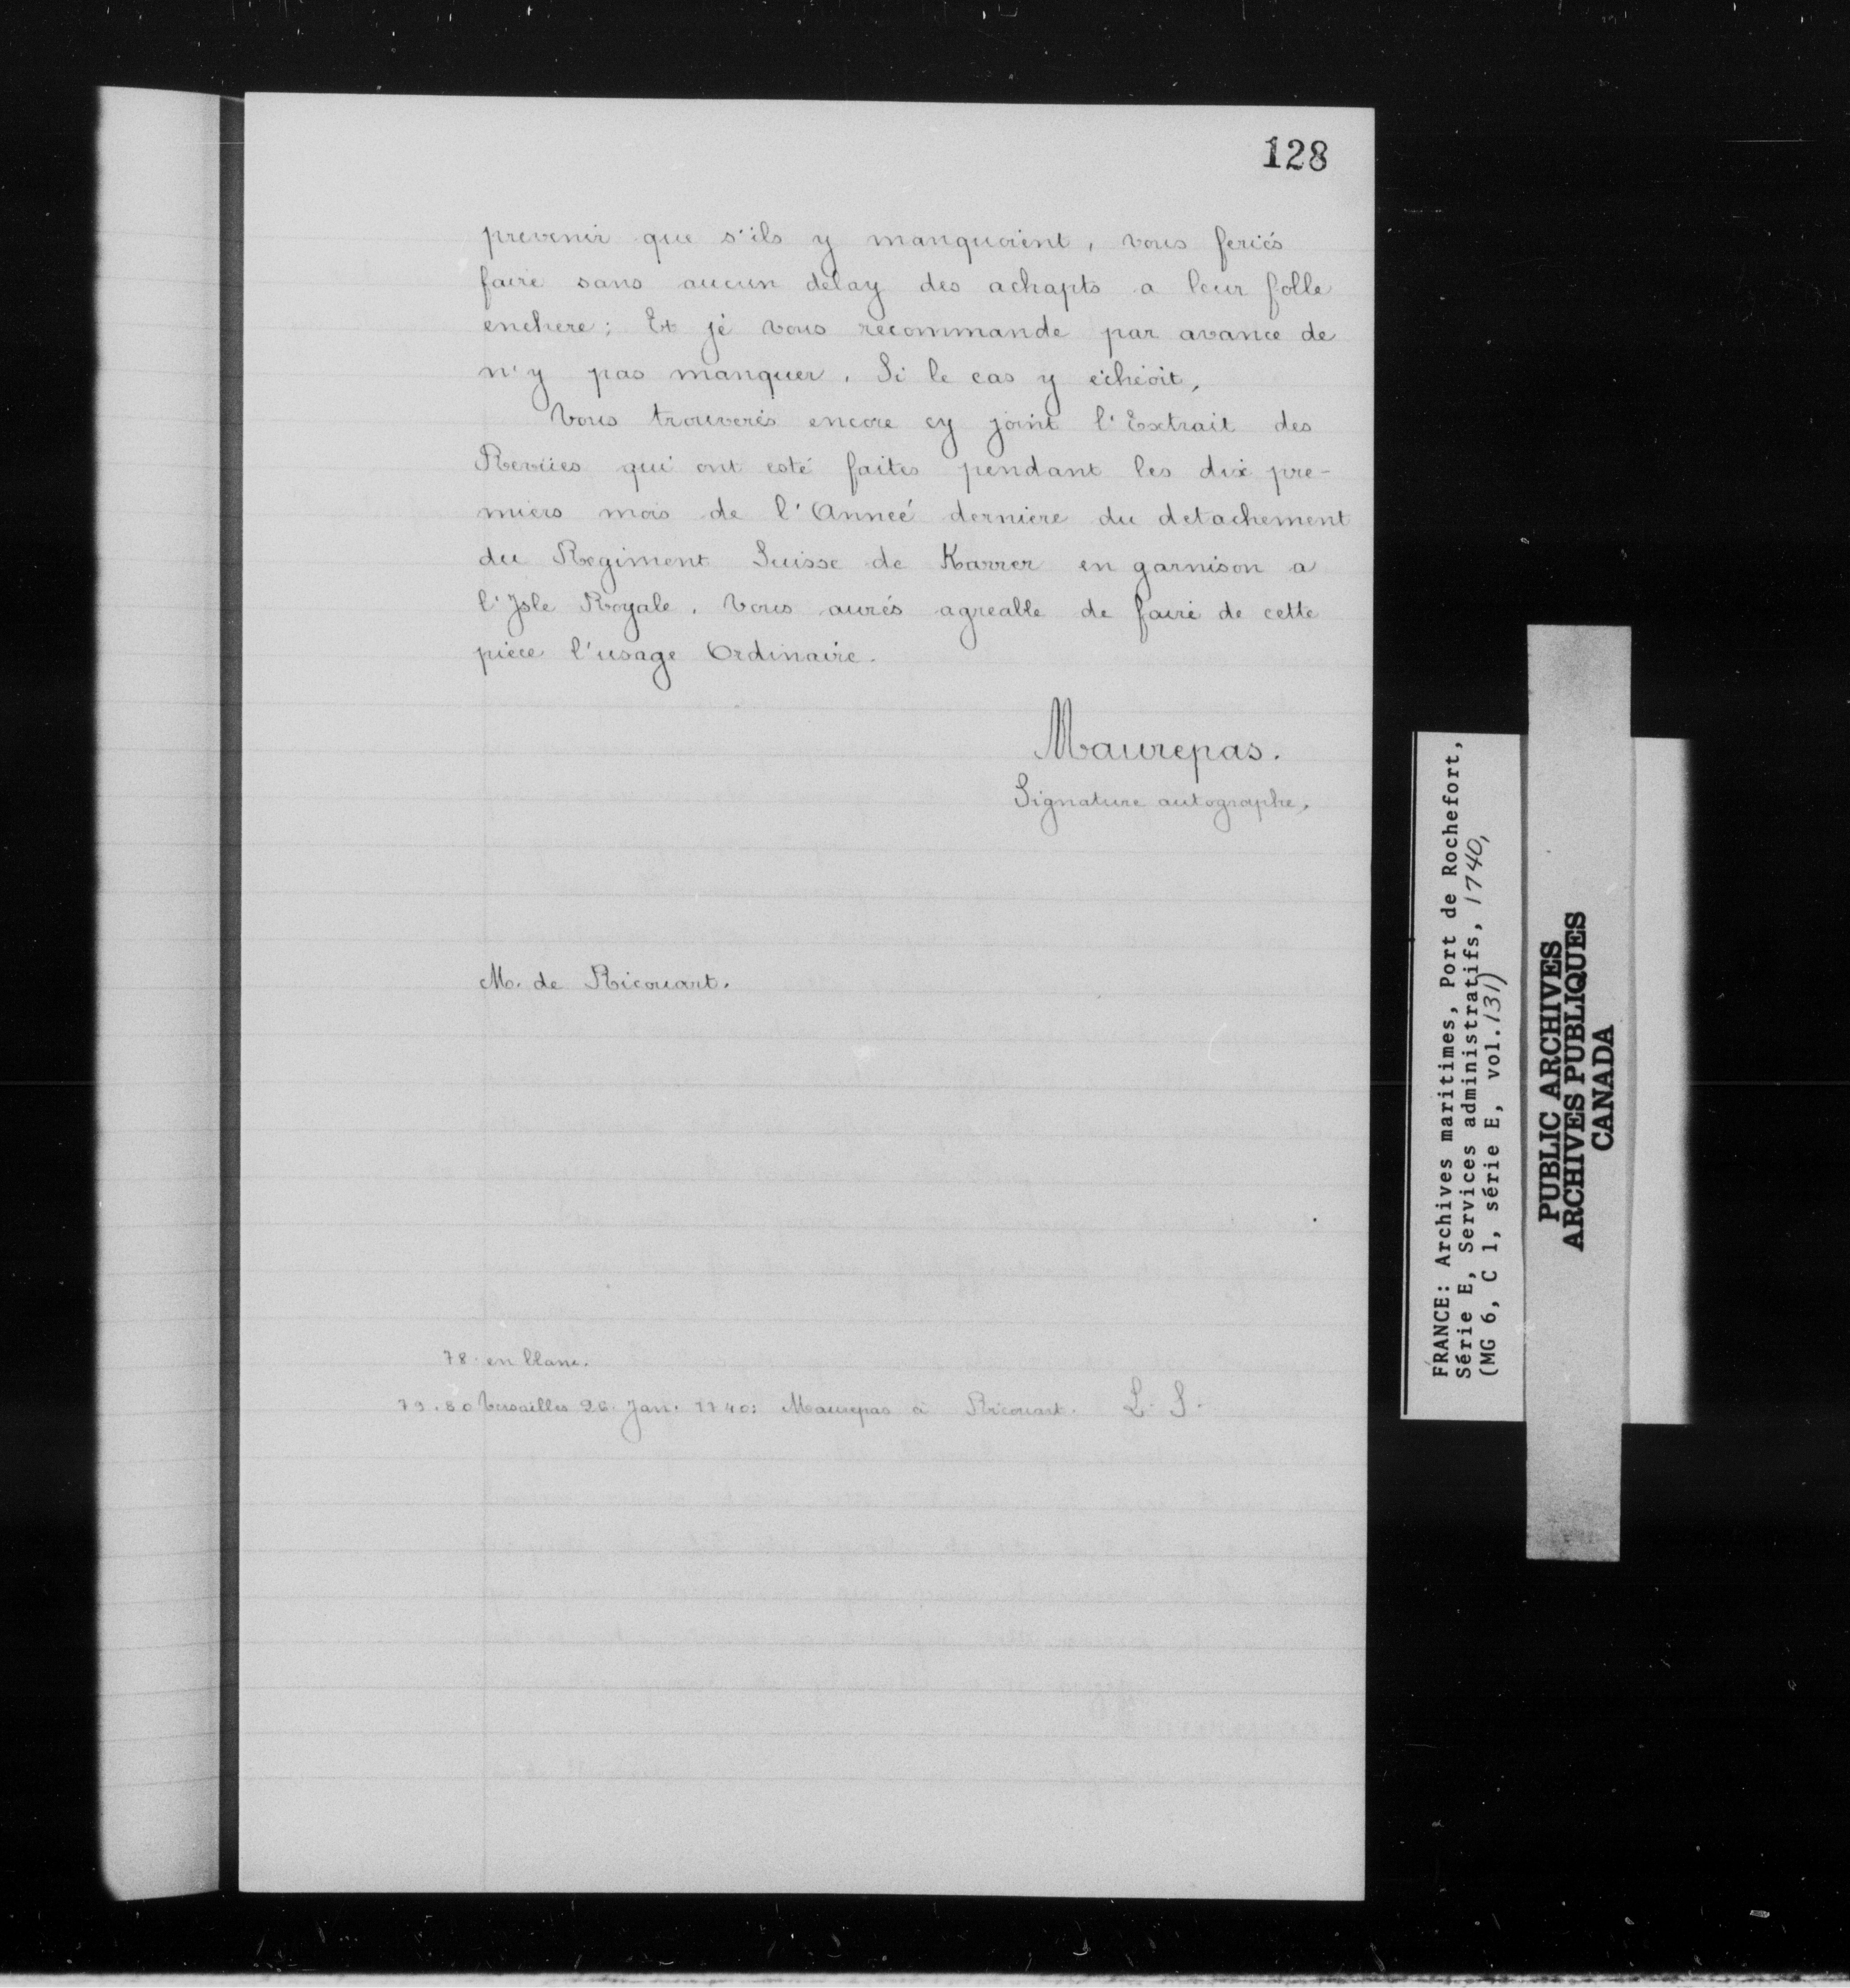 128
prevenir que s'ils y manquoint, vous feriés
faire sans aucun delay des achapts a leur folle
enchere; Et je vous recommande par avance de
n'y pas manquer. Si le cas y echéoit,
Vous trouverés encore cy joint l'Extrait des
Revües qui ont esté faites pendant les dix pre-
miers mois de l'Anneé derniere du detachement
du Regiment Suisse de Karrer en garnison a
l'Isle Royale. Vous aurés agreable de faire de cette
piece l'usage Ordinaire.
Maurepas.
Signature autographe.
M. de Ricouart.
78. en blanc.
79.80 Versailles 26. Jan. 1740: Maurepas à Ricouart. L. S.
FRANCE: Archives maritimes, Port de Rochefort,
Série E, Services administratifs, 1740,
(MG 6, C 1, série E, vol. 131)
PUBLIC ARCHIVES
ARCHIVES PUBLIQUES
CANADA